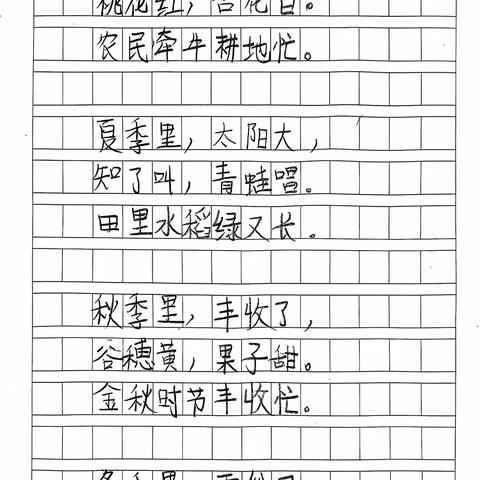 桃花红，杏花白。
农民牵牛耕地忙。
夏季里，太阳大，
知了叫，青蛙唱。
田里水稻绿又长。
秋季里，丰收了，
谷穗黄，果子甜。
金秋时节丰收忙。
冬季里，